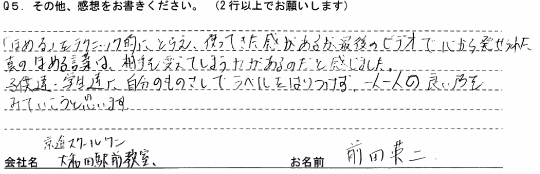 Q5. その他、感想をお書きください。（2行以上でお願いします）
「ほめる」をテクニック的にとらえ、使ってきた感があるが、最後のビデオで心から発せられた
真のほめる言葉は、相手を変えてしまう力があるのだと感じました。
子供達・学生達に自分のものさしでラベルをはりつけず、一人一人の良い所を
みていこうと思います。
京進スクールワン
会社名 大和田駅前教室、 お名前 前田英二